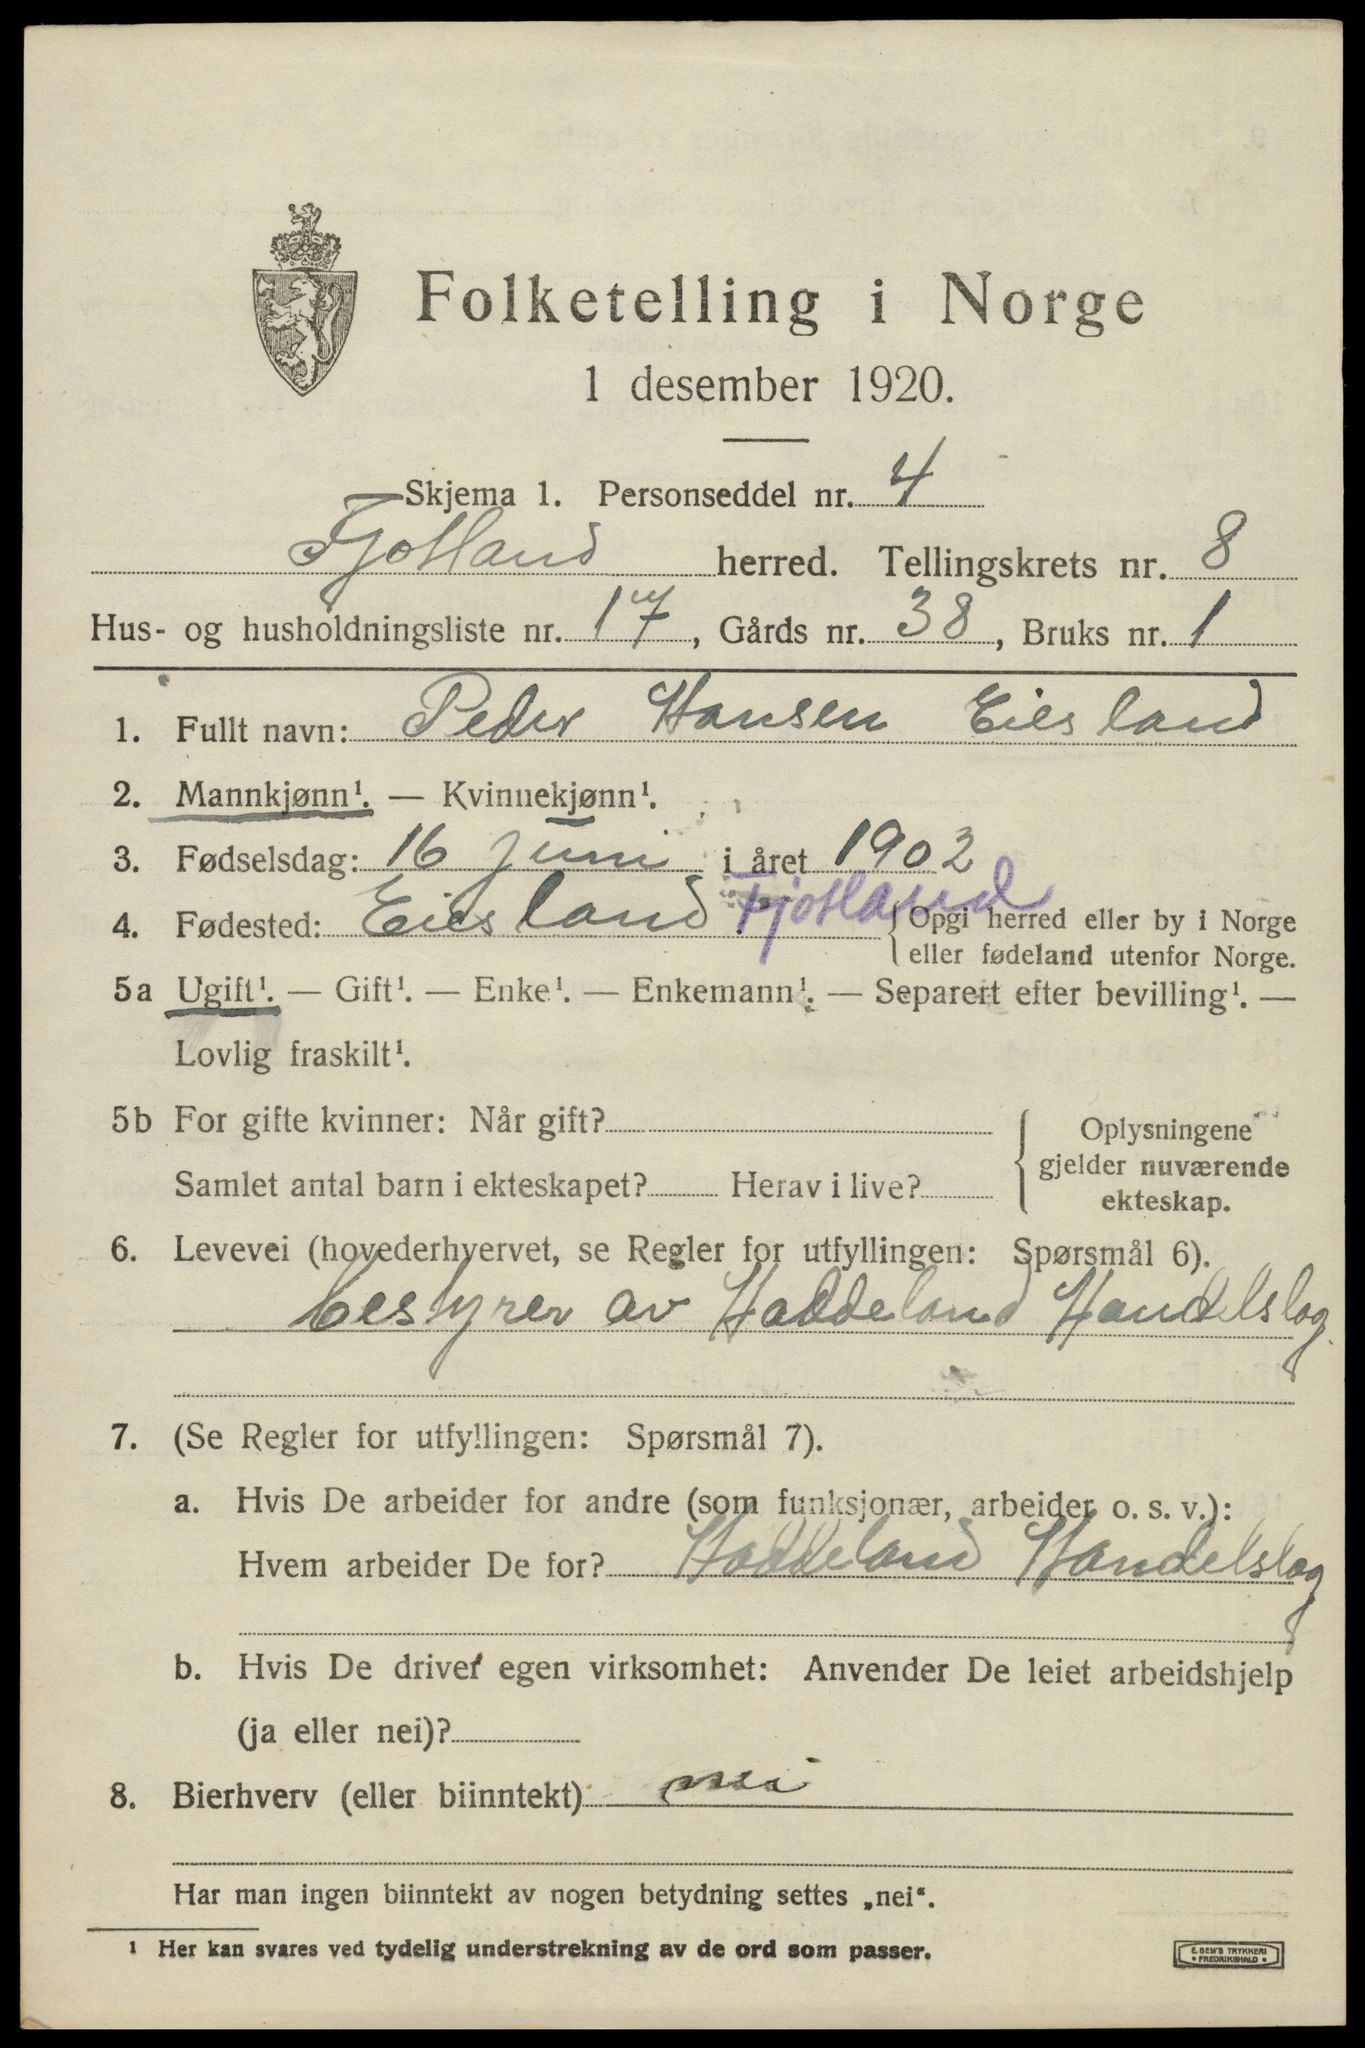 Folketelling i Norge
1 desember 1920.
Skjema 1. Personseddel nr. 4
Fjotland herred. Tellingskrets nr. 8
Hus- og husholdningsliste nr. 17, Gårds nr. 38, Bruks nr. 1
1. Fullt navn: Peder Hansen Eiesland
2. Mannkjønn¹. — Kvinnekjønn¹.
3. Fødselsdag: 16 juni i året 1902
4. Fødested: Eiesland Fjotland {Opgi herred eller by i Norge
eller fødeland utenfor Norge.
5a Ugift¹. — Gift¹. — Enke¹. — Enkemann¹. — Separert efter bevilling¹. —
Lovlig fraskilt¹.
5b For gifte kvinner: Når gift? { Oplysningene
gjelder nuværende
Samlet antal barn i ekteskapet? Herav i live?
ekteskap.
6. Levevei (hovederhvervet, se Regler for utfyllingen: Spørsmål 6).
bestyrer av Haddeland Handelslag
7. (Se Regler for utfyllingen: Spørsmål 7).
a. Hvis De arbeider for andre (som funksjonær, arbeider o. s. v.):
Hvem arbeider De for? Haddeland Handelslag
b. Hvis De driver egen virksomhet: Anvender De leiet arbeidshjelp
(ja eller nei)?
8. Bierhverv (eller biinntekt) nei
Har man ingen biinntekt av nogen betydning settes „nei“.
¹ Her kan svares ved tydelig understrekning av de ord som passer.
E. SEM'S TRYKKERI
• FREDRIKSHALD •